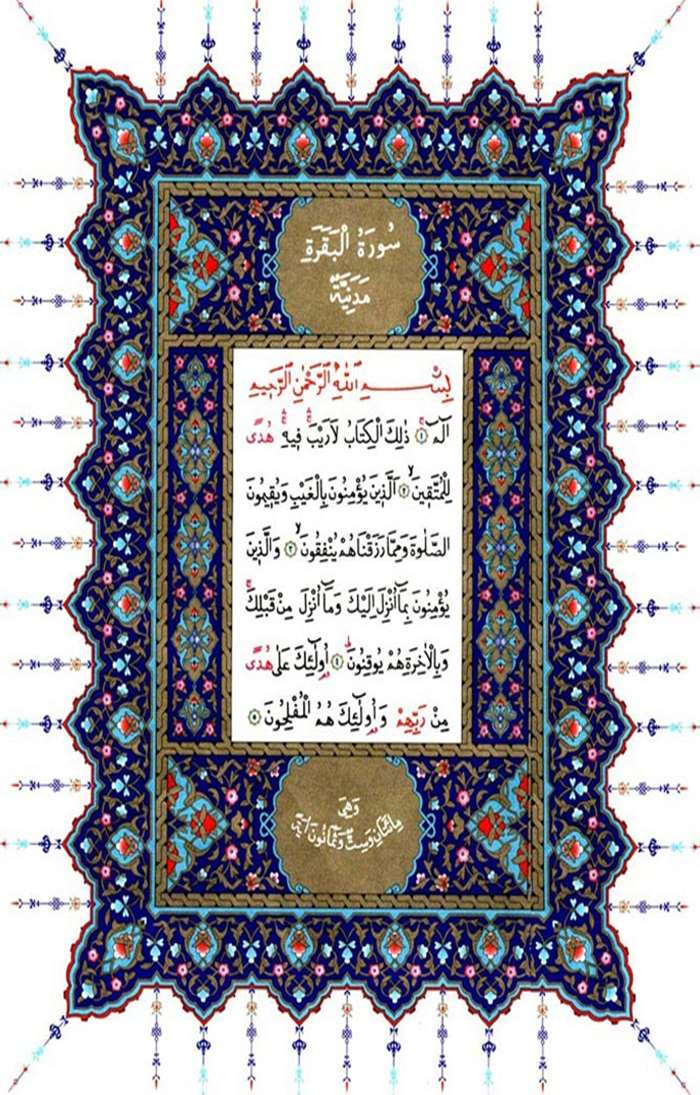 سُورَةُ الْبَقَرَةِ
مَدَنِيَّةٌ
بِسْمِ اللّٰهِ الرَّحْمٰنِ الرَّحِيمِ
الٓمٓ ﴿١﴾ ذٰلِكَ الْكِتَابُ لَا رَيْبَ ۚ فِيهِ ۚ هُدًى
لِلْمُتَّقِينَ ۙ ﴿٢﴾ اَلَّذِينَ يُؤْمِنُونَ بِالْغَيْبِ وَيُقِيمُونَ
الصَّلٰوةَ وَمِمَّا رَزَقْنَاهُمْ يُنْفِقُونَ ۙ ﴿٣﴾ وَالَّذِينَ
يُؤْمِنُونَ بِمَٓا اُنْزِلَ اِلَيْكَ وَمَٓا اُنْزِلَ مِنْ قَبْلِكَ ۚ
وَبِالْاٰخِرَةِ هُمْ يُوقِنُونَ ۜ ﴿٤﴾ اُو۬لٰٓئِكَ عَلٰى هُدًى
مِنْ رَبِّهِمْ وَاُو۬لٰٓئِكَ هُمُ الْمُفْلِحُونَ ﴿٥﴾
وَهِيَ
مِائَتَانِ وَسِتٌّ وَثَمَانُونَ اٰيَةً